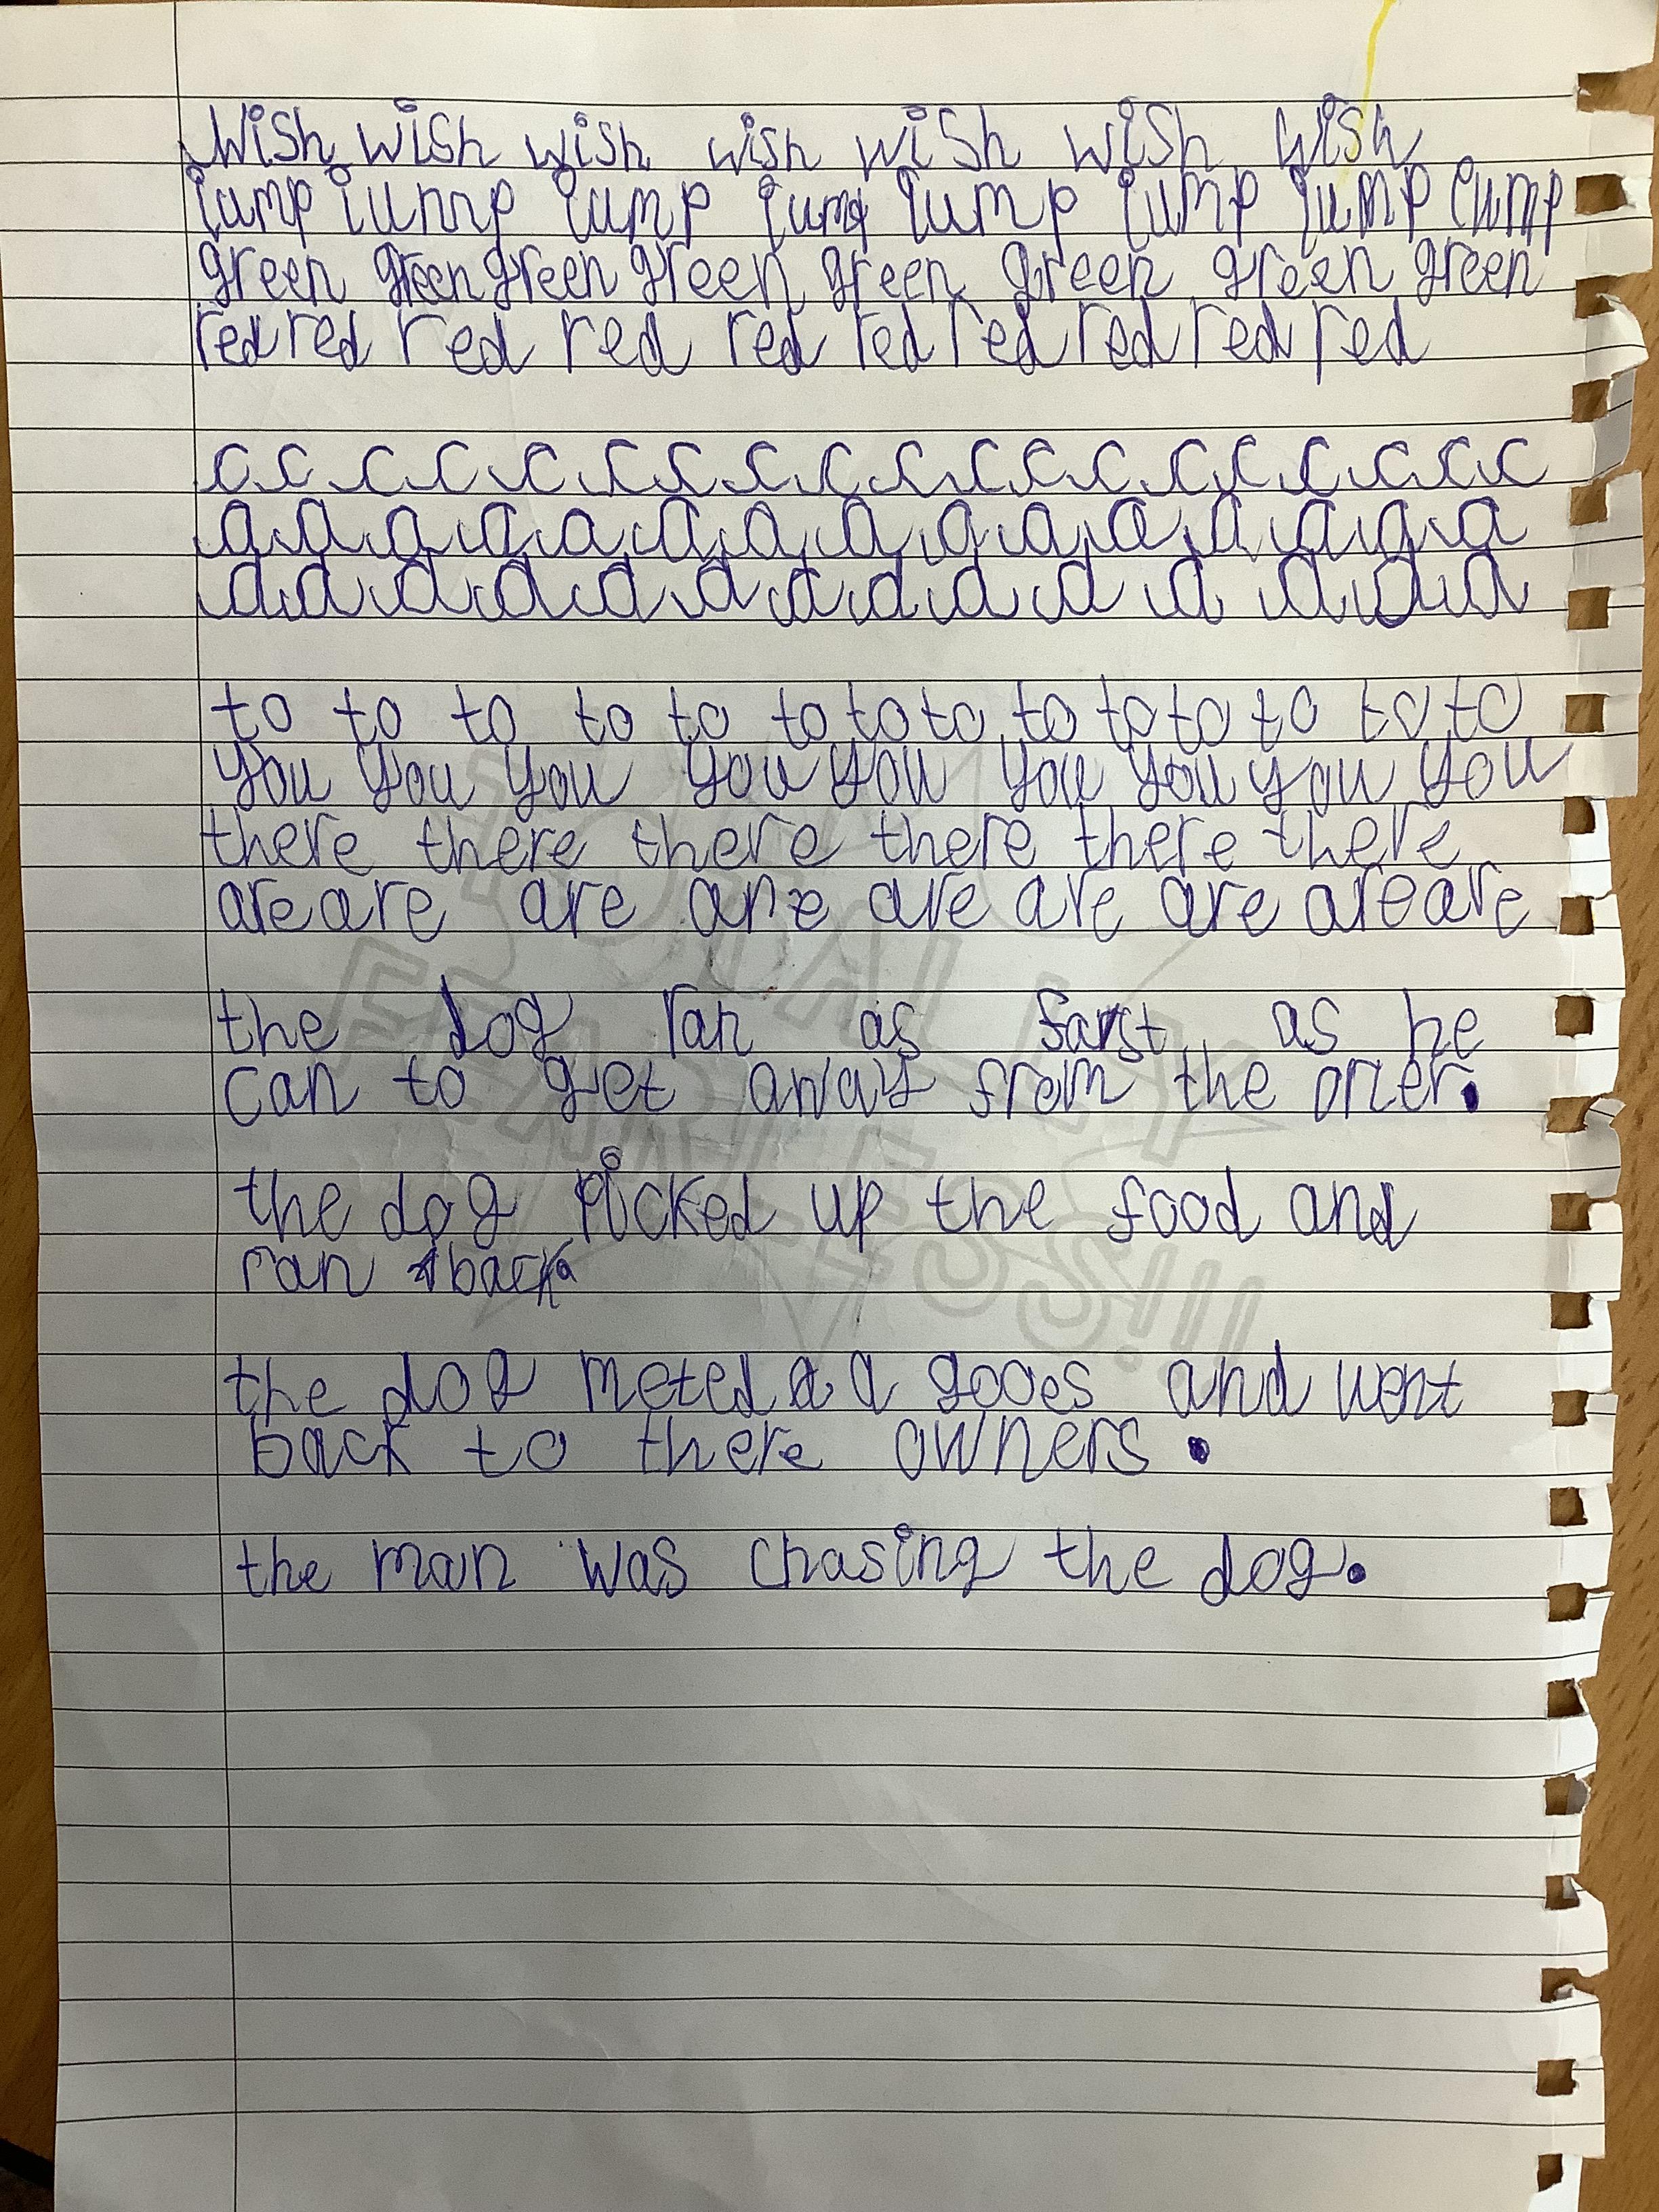 wish wish wish wish wish wish wish
jump jump jump jump jump jump jump jump
green green green green green green green green
red red red red red red red red red red
c c c c c c c c c c c c c c c c c c c
a a a a a a a a a a a a a a a a
d d d d d d d d d d d d d d d
to to to to to to to to to to to to to to
you you you you you you you you you
there there there there there there
are are are are are are are are are
the dog ran as farst as he
can to get away from the oner.
the dog picked up the food and
ran back
the dog meted a a gooes and went
back to there owners.
the man was chasing the dog.
TOTALLY
FEARLESS!!!